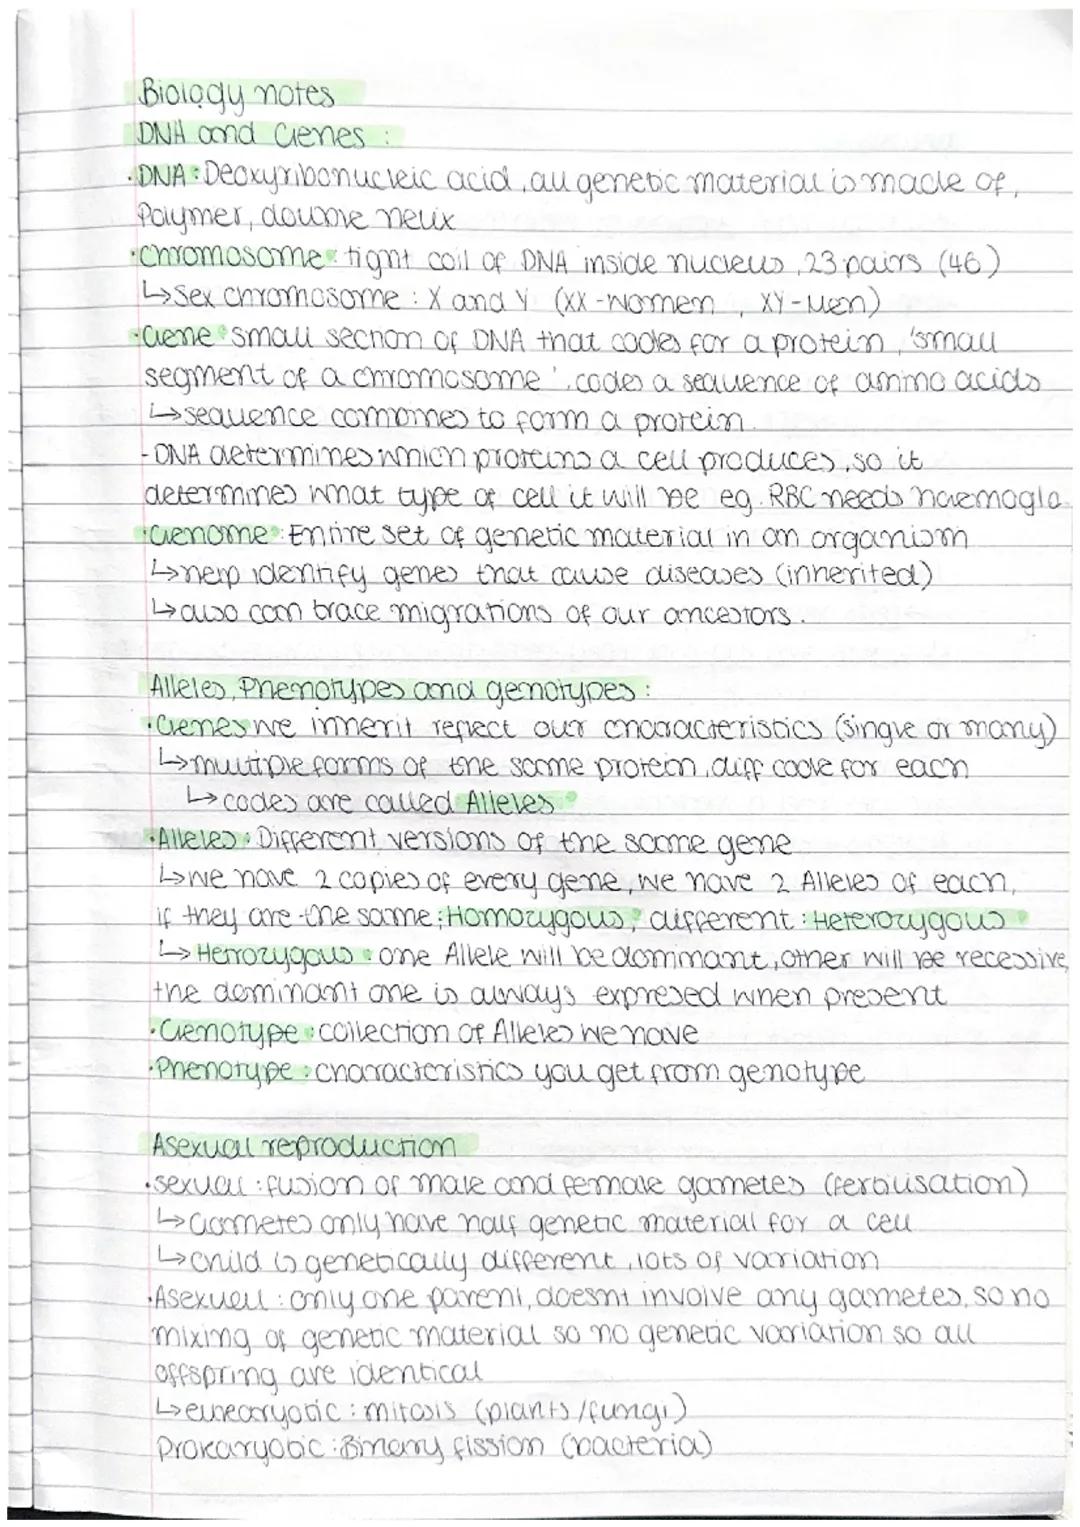 Biology notes
DNA and Genes :
· DNA : Deoxyribonucleic acid, all genetic material is made of,
Polymer, double helix
· Chromosome : tight coil of DNA inside nucleus, 23 pairs (46)
↳ Sex chromosome : X and Y (XX - Women , XY - Men)
· Gene : small section of DNA that codes for a protein, 'small
segment of a chromosome', codes a sequence of amino acids
↳ sequence combines to form a protein.
- DNA determines which proteins a cell produces, so it
determines what type of cell it will be eg. RBC needs haemoglo
· Genome : Entire set of genetic material in an organism
↳ help identify genes that cause diseases (inherited)
↳ also can trace migrations of our ancestors.
Alleles, Phenotypes and genotypes :
· Genes we inherit reflect our characteristics (single or many)
↳ multiple forms of the same protein, diff code for each
↳ codes are called Alleles
· Alleles : Different versions of the same gene
↳ we have 2 copies of every gene, we have 2 Alleles of each,
if they are the same : Homozygous, different : Heterozygous
↳ Hetrozygous : one Allele will be dominant, other will be recessive,
the dominant one is always expresed when present
· Genotype : collection of Alleles we have
· Phenotype : characteristics you get from genotype
Asexual reproduction
· sexual : fusion of male and female gametes (fertilisation)
↳ Gametes only have half genetic material for a cell
↳ child is genetically different, lots of variation
· Asexuell : only one parent, doesnt involve any gametes, so no
mixing of genetic material so no genetic variation so all
offspring are identical
↳ eukaryotic : mitosis (plants / fungi)
Prokaryotic : Binary fission (bacteria)